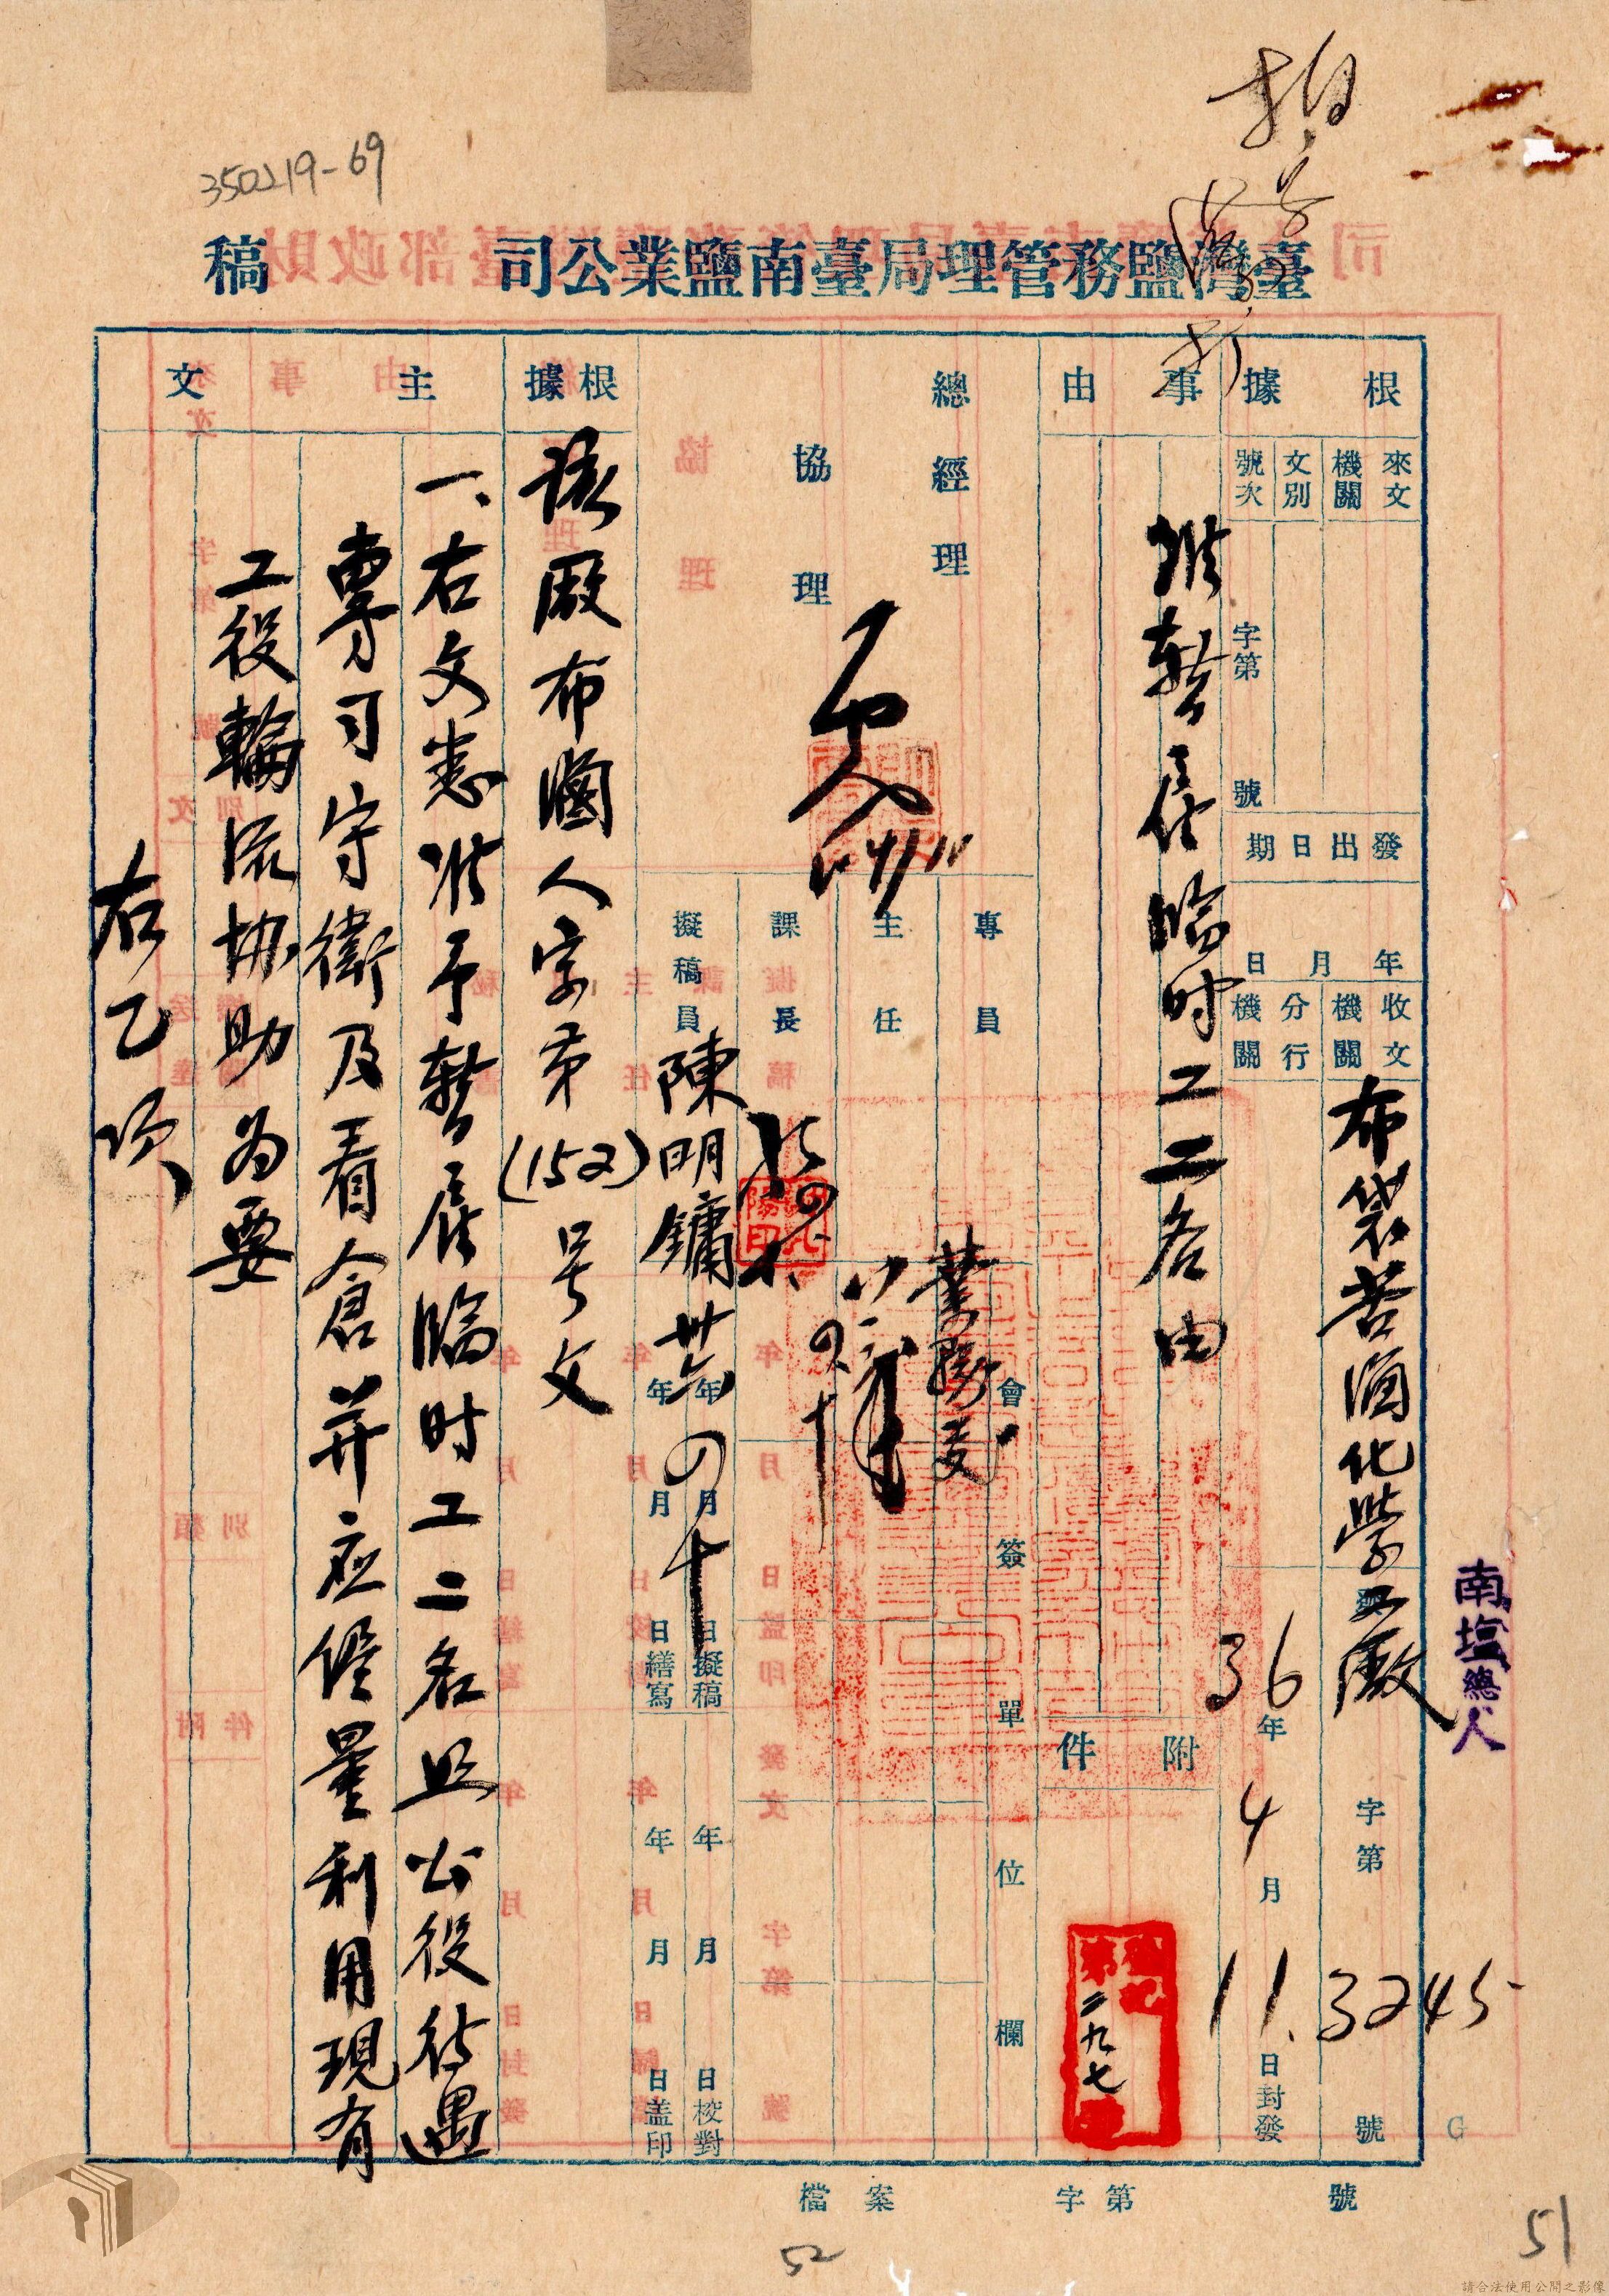 350219-69
臺灣鹽務管理局臺南鹽業公司 稿
根據
來文機關
文別
號次
字第 號
發出日期
年 月 日
收文機關
分行機關
布袋苦滷化學工廠
字第 3245 號
南塩總人
36年4月11日封發
事由
准暫雇臨时工二名由
附件
第二九七
總經理
協理
專員
主任
課長
擬稿員
陳明鏞
卅六年四月十日擬稿
年 月 日繕寫
年 月 日校對
年 月 日盖印
會簽單位欄
根據
該廠布滷人字第(152)号文
主文
一、右文悉准予暫雇臨时工二名照公役待遇
專司守衛及看倉并应儘量利用現有
工役輪流協助为要
右乙項
檔案 字第 號
52
51
G
請合法使用公開之影像